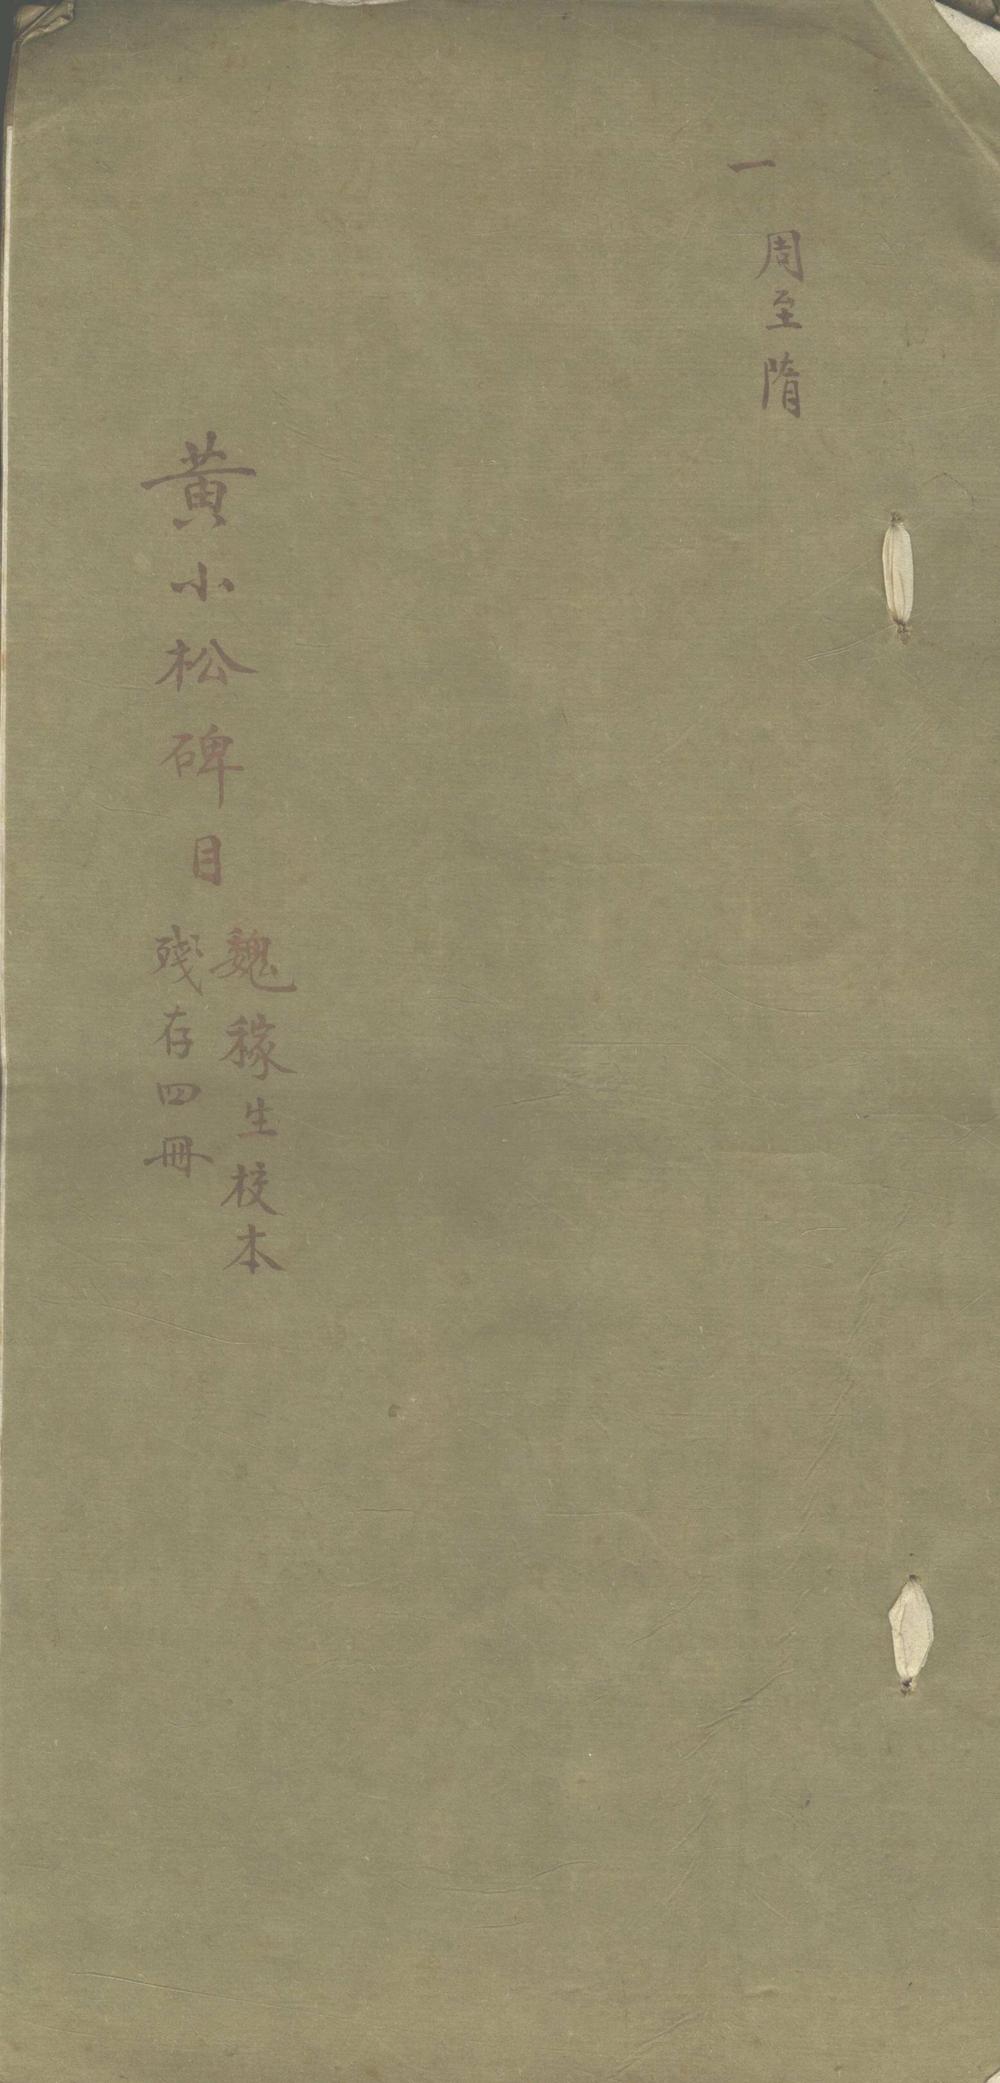 一
周至隋
黄小松碑目
魏稼生校本
殘存四冊